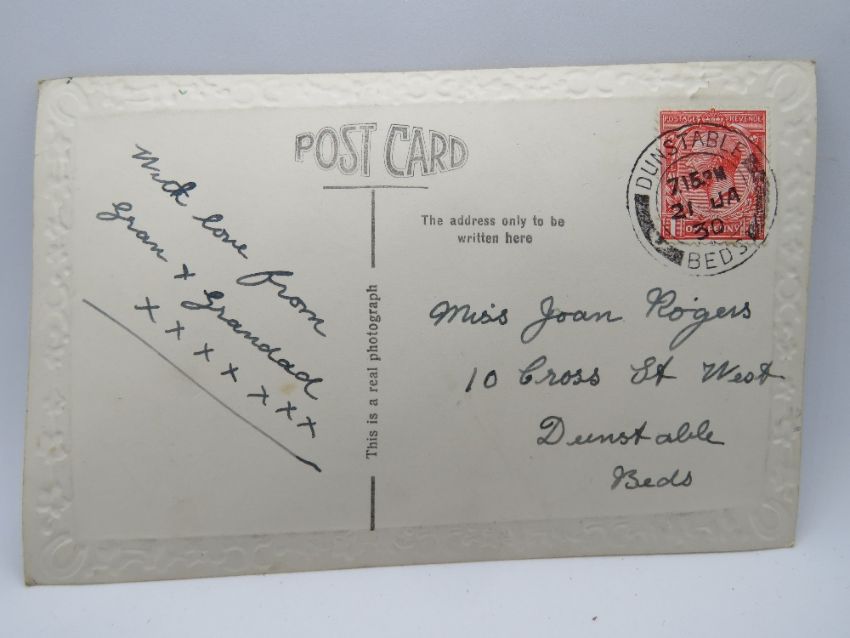 POST CARD
With love from
Gran + Grandad
x x x x x x x
This is a real photograph
The address only to be
written here
POSTAGE & REVENUE
DUNSTABLE
715PM
21 JA
30
BEDS
Miss Joan Rogers
10 Cross St West
Dunstable
Beds